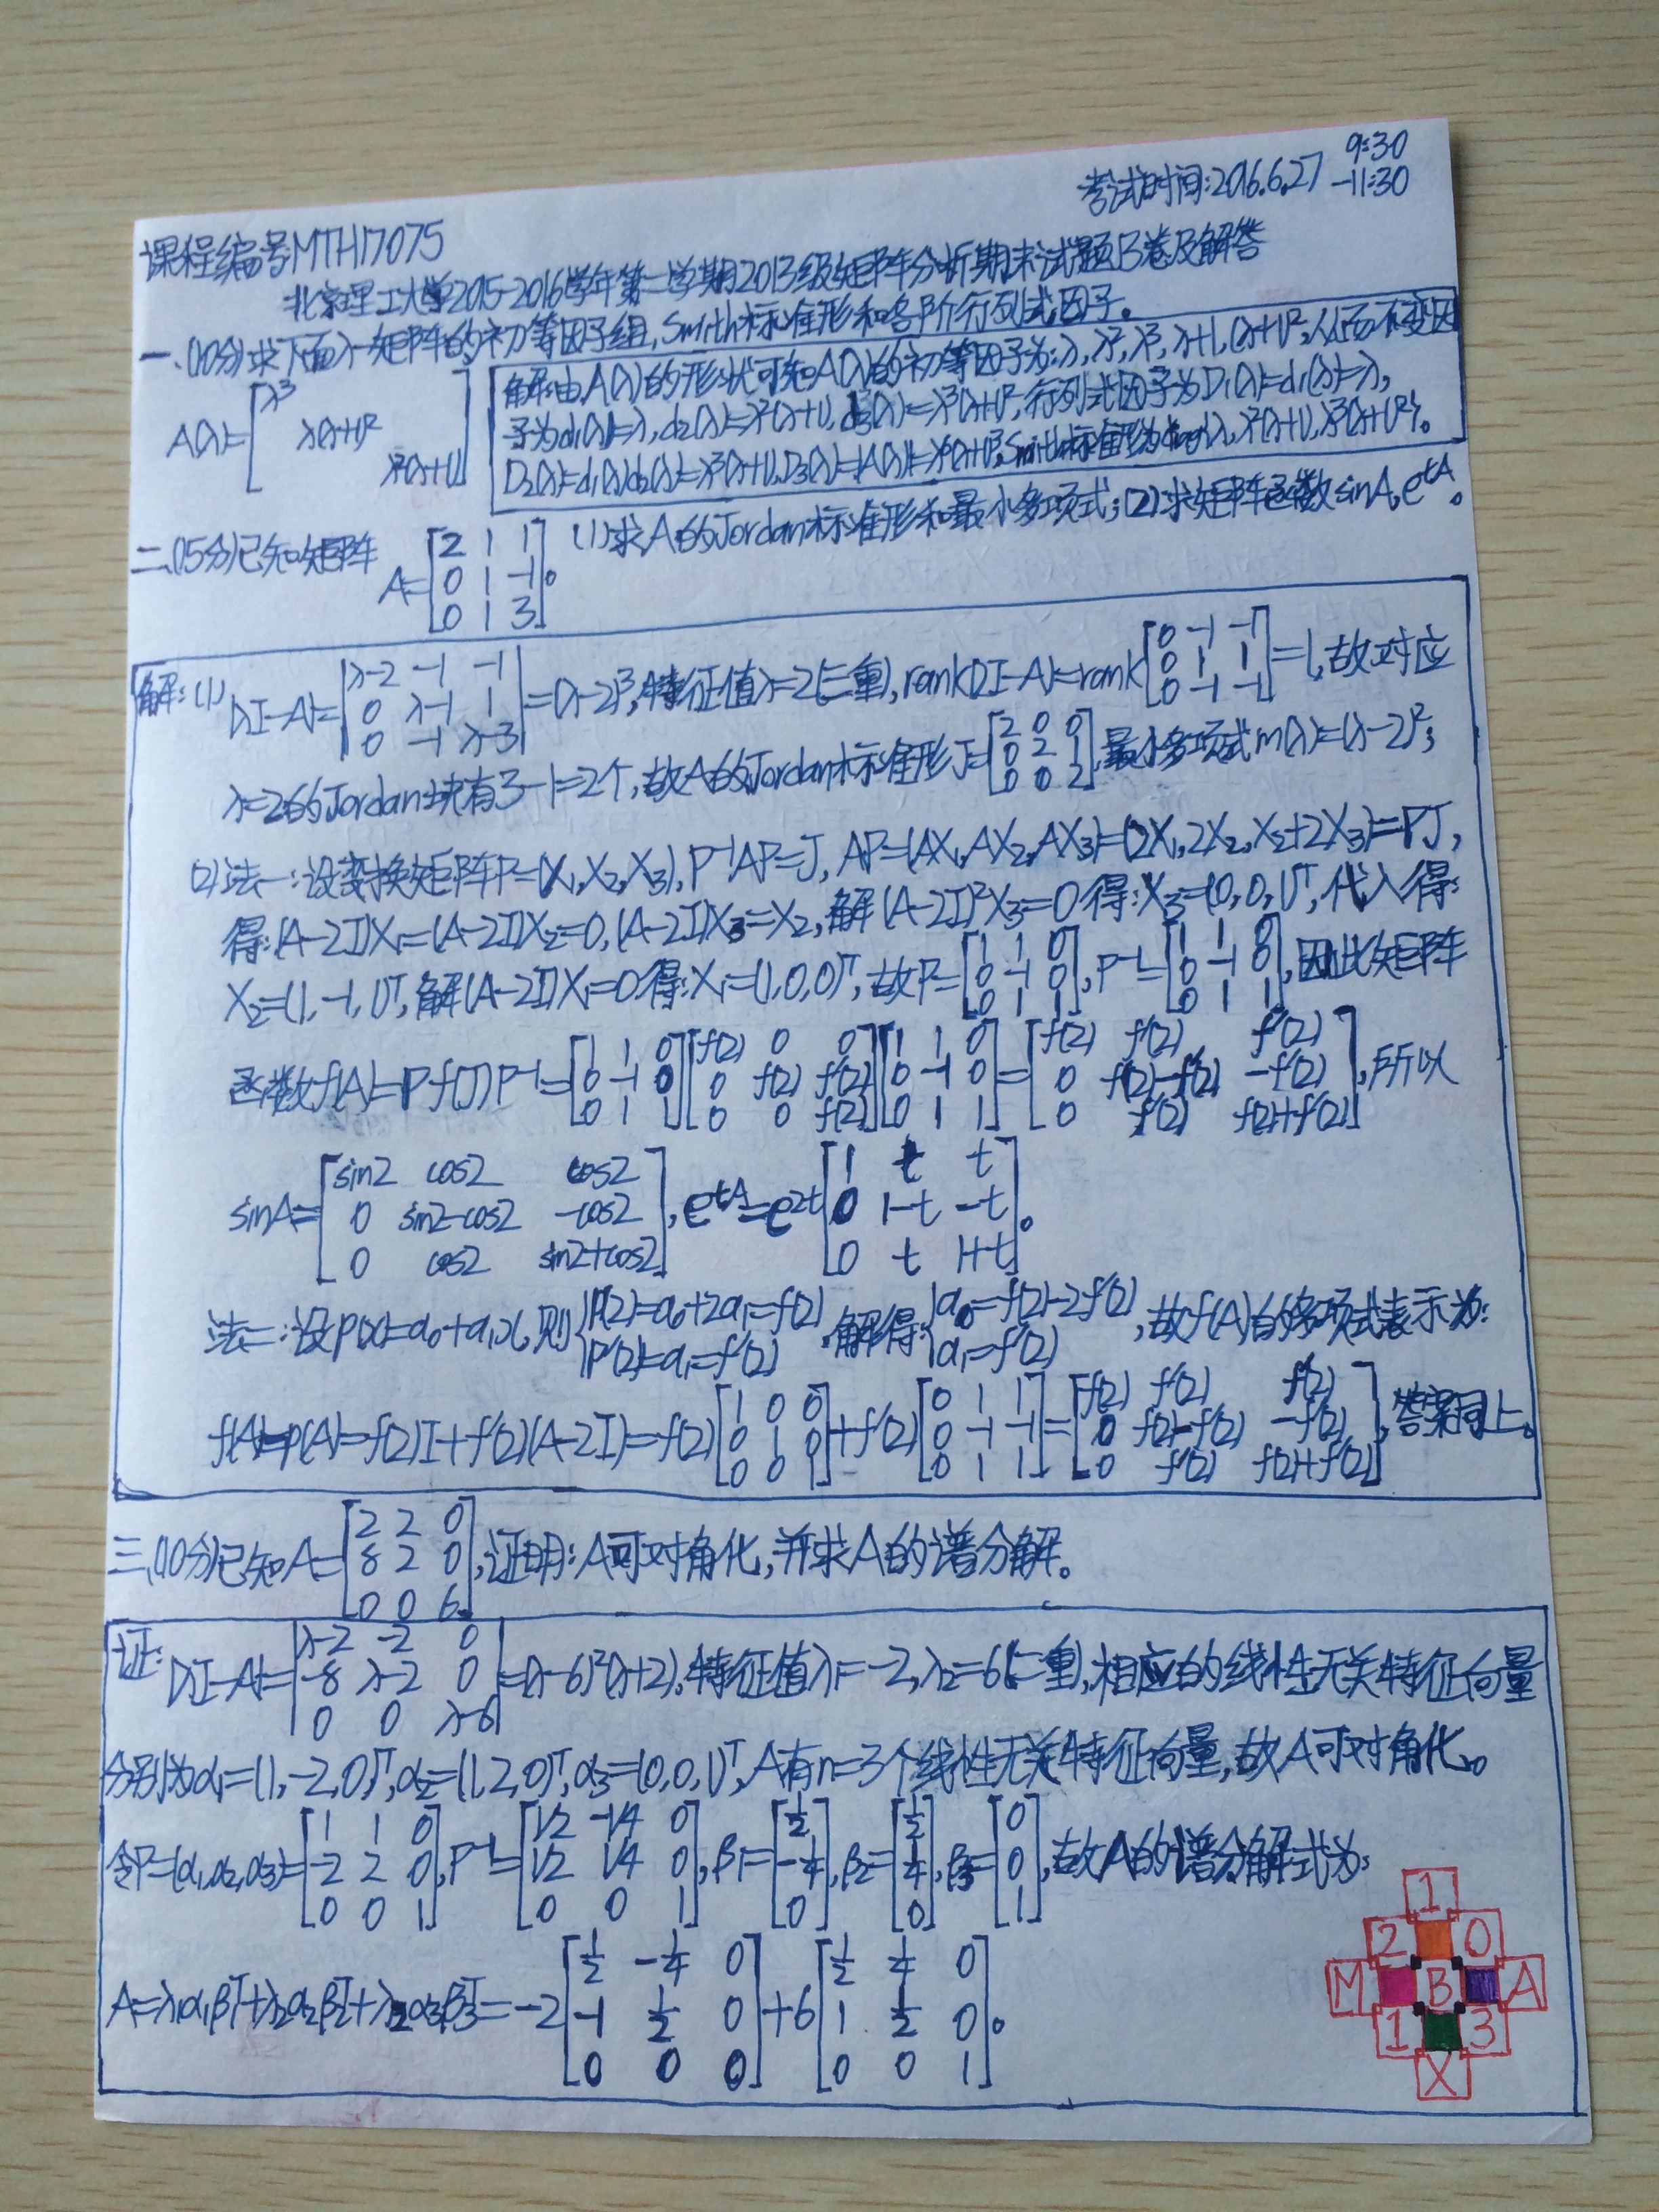 考试时间:2016.6.27 9:30-11:30
课程编号MTH17075
北京理工大学2015-2016学年第二学期2013级矩阵分析期末试题B卷及解答
一、(10分)求下面λ-矩阵的初等因子组,Smith标准形和各阶行列式因子。
A(λ)=[λ³ λ(λ+1)² λ²(λ+1)]
解:由A(λ)的形状可知A(λ)的初等因子为:λ,λ²,λ³,λ+1,(λ+1)²,从而不变因
子为d₁(λ)=λ,d₂(λ)=λ²(λ+1),d₃(λ)=λ³(λ+1)²,行列式因子为D₁(λ)=d₁(λ)=λ,
D₂(λ)=d₁(λ)d₂(λ)=λ³(λ+1),D₃(λ)=|A(λ)|=λ⁶(λ+1)³,Smith标准形为diag{λ,λ²(λ+1),λ³(λ+1)²}。
二、(15分)已知矩阵 A=[2 1 1; 0 1 -1; 0 1 3]。(1)求A的Jordan标准形和最小多项式;(2)求矩阵函数sinA,e^{tA}。
解:(1) |λI-A|=|λ-2 -1 -1; 0 λ-1 1; 0 -1 λ-3|=(λ-2)³,特征值λ=2(三重),rank(2I-A)=rank[0 -1 -1; 0 1 1; 0 -1 -1]=1,故对应
λ=2的Jordan块有3-1=2个,故A的Jordan标准形J=[2 0 0; 0 2 1; 0 0 2],最小多项式m(λ)=(λ-2)²;
(2)法一:设变换矩阵P=(X₁,X₂,X₃),P⁻¹AP=J,AP=(AX₁,AX₂,AX₃)=(2X₁,2X₂,X₂+2X₃)=PJ,
得:(A-2I)X₁=(A-2I)X₂=0,(A-2I)X₃=X₂,解(A-2I)²X₃=0得:X₃=(0,0,1)ᵀ,代入得:
X₂=(1,-1,1)ᵀ,解(A-2I)X₁=0得:X₁=(1,0,0)ᵀ,故P=[1 1 0; 0 -1 0; 0 1 1],P⁻¹=[1 1 0; 0 -1 0; 0 1 1],因此矩阵
函数f(A)=Pf(J)P⁻¹=[1 1 0; 0 -1 0; 0 1 1][f(2) 0 0; 0 f(2) f'(2); 0 0 f(2)][1 1 0; 0 -1 0; 0 1 1]=[f(2) f'(2) f'(2); 0 f(2)-f'(2) -f'(2); 0 f'(2) f(2)+f'(2)],所以
sinA=[sin2 cos2 cos2; 0 sin2-cos2 -cos2; 0 cos2 sin2+cos2],e^{tA}=e^{2t}[1 t t; 0 1-t -t; 0 t 1+t]。
法二:设p(x)=a₀+a₁x,则{p(2)=a₀+2a₁=f(2) p'(2)=a₁=f'(2),解得:{a₀=f(2)-2f'(2) a₁=f'(2),故f(A)的多项式表示为:
f(A)=p(A)=f(2)I+f'(2)(A-2I)=f(2)[1 0 0; 0 1 0; 0 0 1]+f'(2)[0 1 1; 0 -1 -1; 0 1 1]=[f(2) f'(2) f'(2); 0 f(2)-f'(2) -f'(2); 0 f'(2) f(2)+f'(2)],答案同上。
三、(10分)已知A=[2 2 0; 8 2 0; 0 0 6],证明:A可对角化,并求A的谱分解。
证: |λI-A|=|λ-2 -2 0; -8 λ-2 0; 0 0 λ-6|=(λ-6)²(λ+2),特征值λ₁=-2,λ₂=6(二重),相应的线性无关特征向量
分别为α₁=(1,-2,0)ᵀ,α₂=(1,2,0)ᵀ,α₃=(0,0,1)ᵀ,A有n=3个线性无关特征向量,故A可对角化。
令P=(α₁,α₂,α₃)=[1 1 0; -2 2 0; 0 0 1],P⁻¹=[1/2 -1/4 0; 1/2 1/4 0; 0 0 1],β₁=[1/2; -1/4; 0],β₂=[1/2; 1/4; 0],β₃=[0; 0; 1],故A的谱分解式为:
A=λ₁α₁β₁ᵀ+λ₂α₂β₂ᵀ+λ₂α₃β₃ᵀ=-2[1/2 -1/4 0; -1 1/2 0; 0 0 0]+6[1/2 1/4 0; 1 1/2 0; 0 0 1]。
1
2 0
M B A
1 3
X